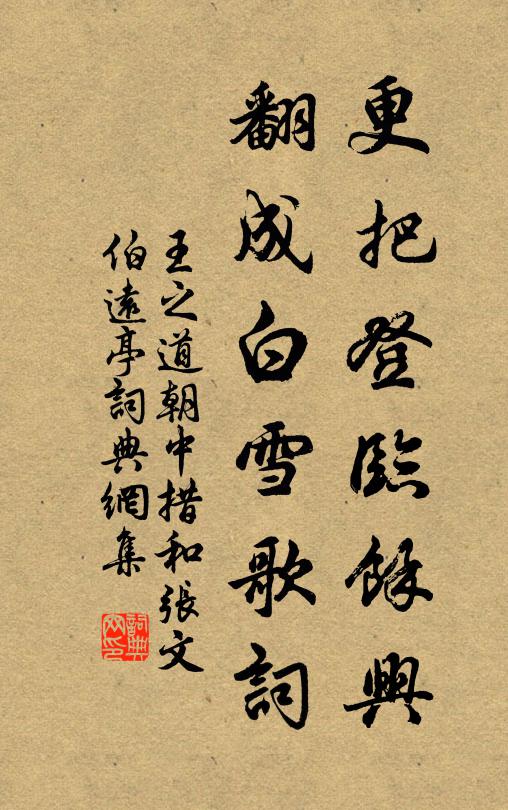 更把登臨餘興
翻成白雪歌詞
王之道朝中措和張文
伯遠亭詞典網集
詞典網印